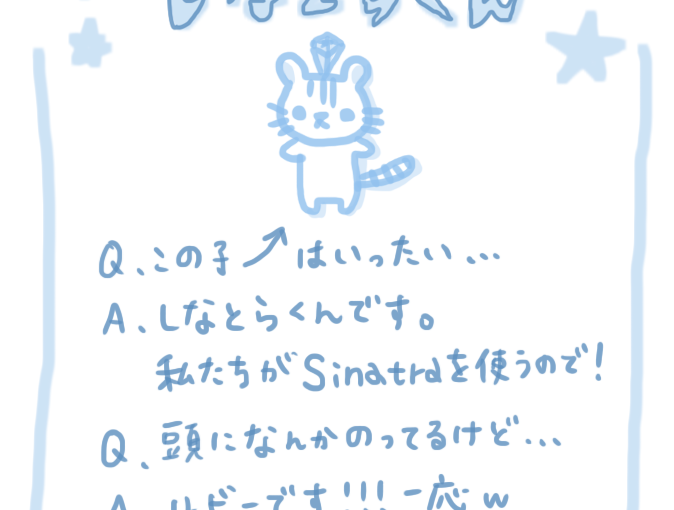 しなとらくん
Q、この子↗はいったい...
A、しなとらくんです。
私たちがSinatraを使うので!
Q、頭になんかのってるけど...
A、ルビーです!!! 一応w